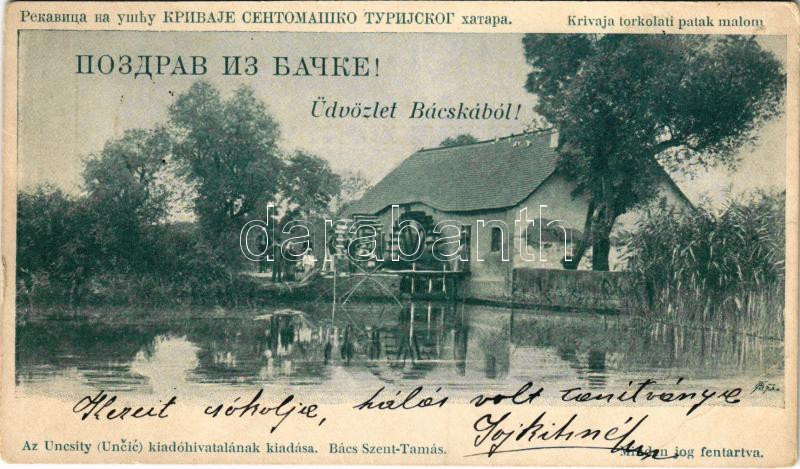 Рекавица на ушћу КРИВАЈЕ СЕНТОМАШКО ТУРИЈСКОГ хатара.
Krivaja torkolati patak malom
ПОЗДРАВ ИЗ БАЧКЕ!
Üdvözlet Bácskából!
darabanth
Kezeit csókolja, hálás volt tanítványa
Az Uncsity (Unčić) kiadóhivatalának kiadása. Bács Szent-Tamás.
Minden jog fentartva.